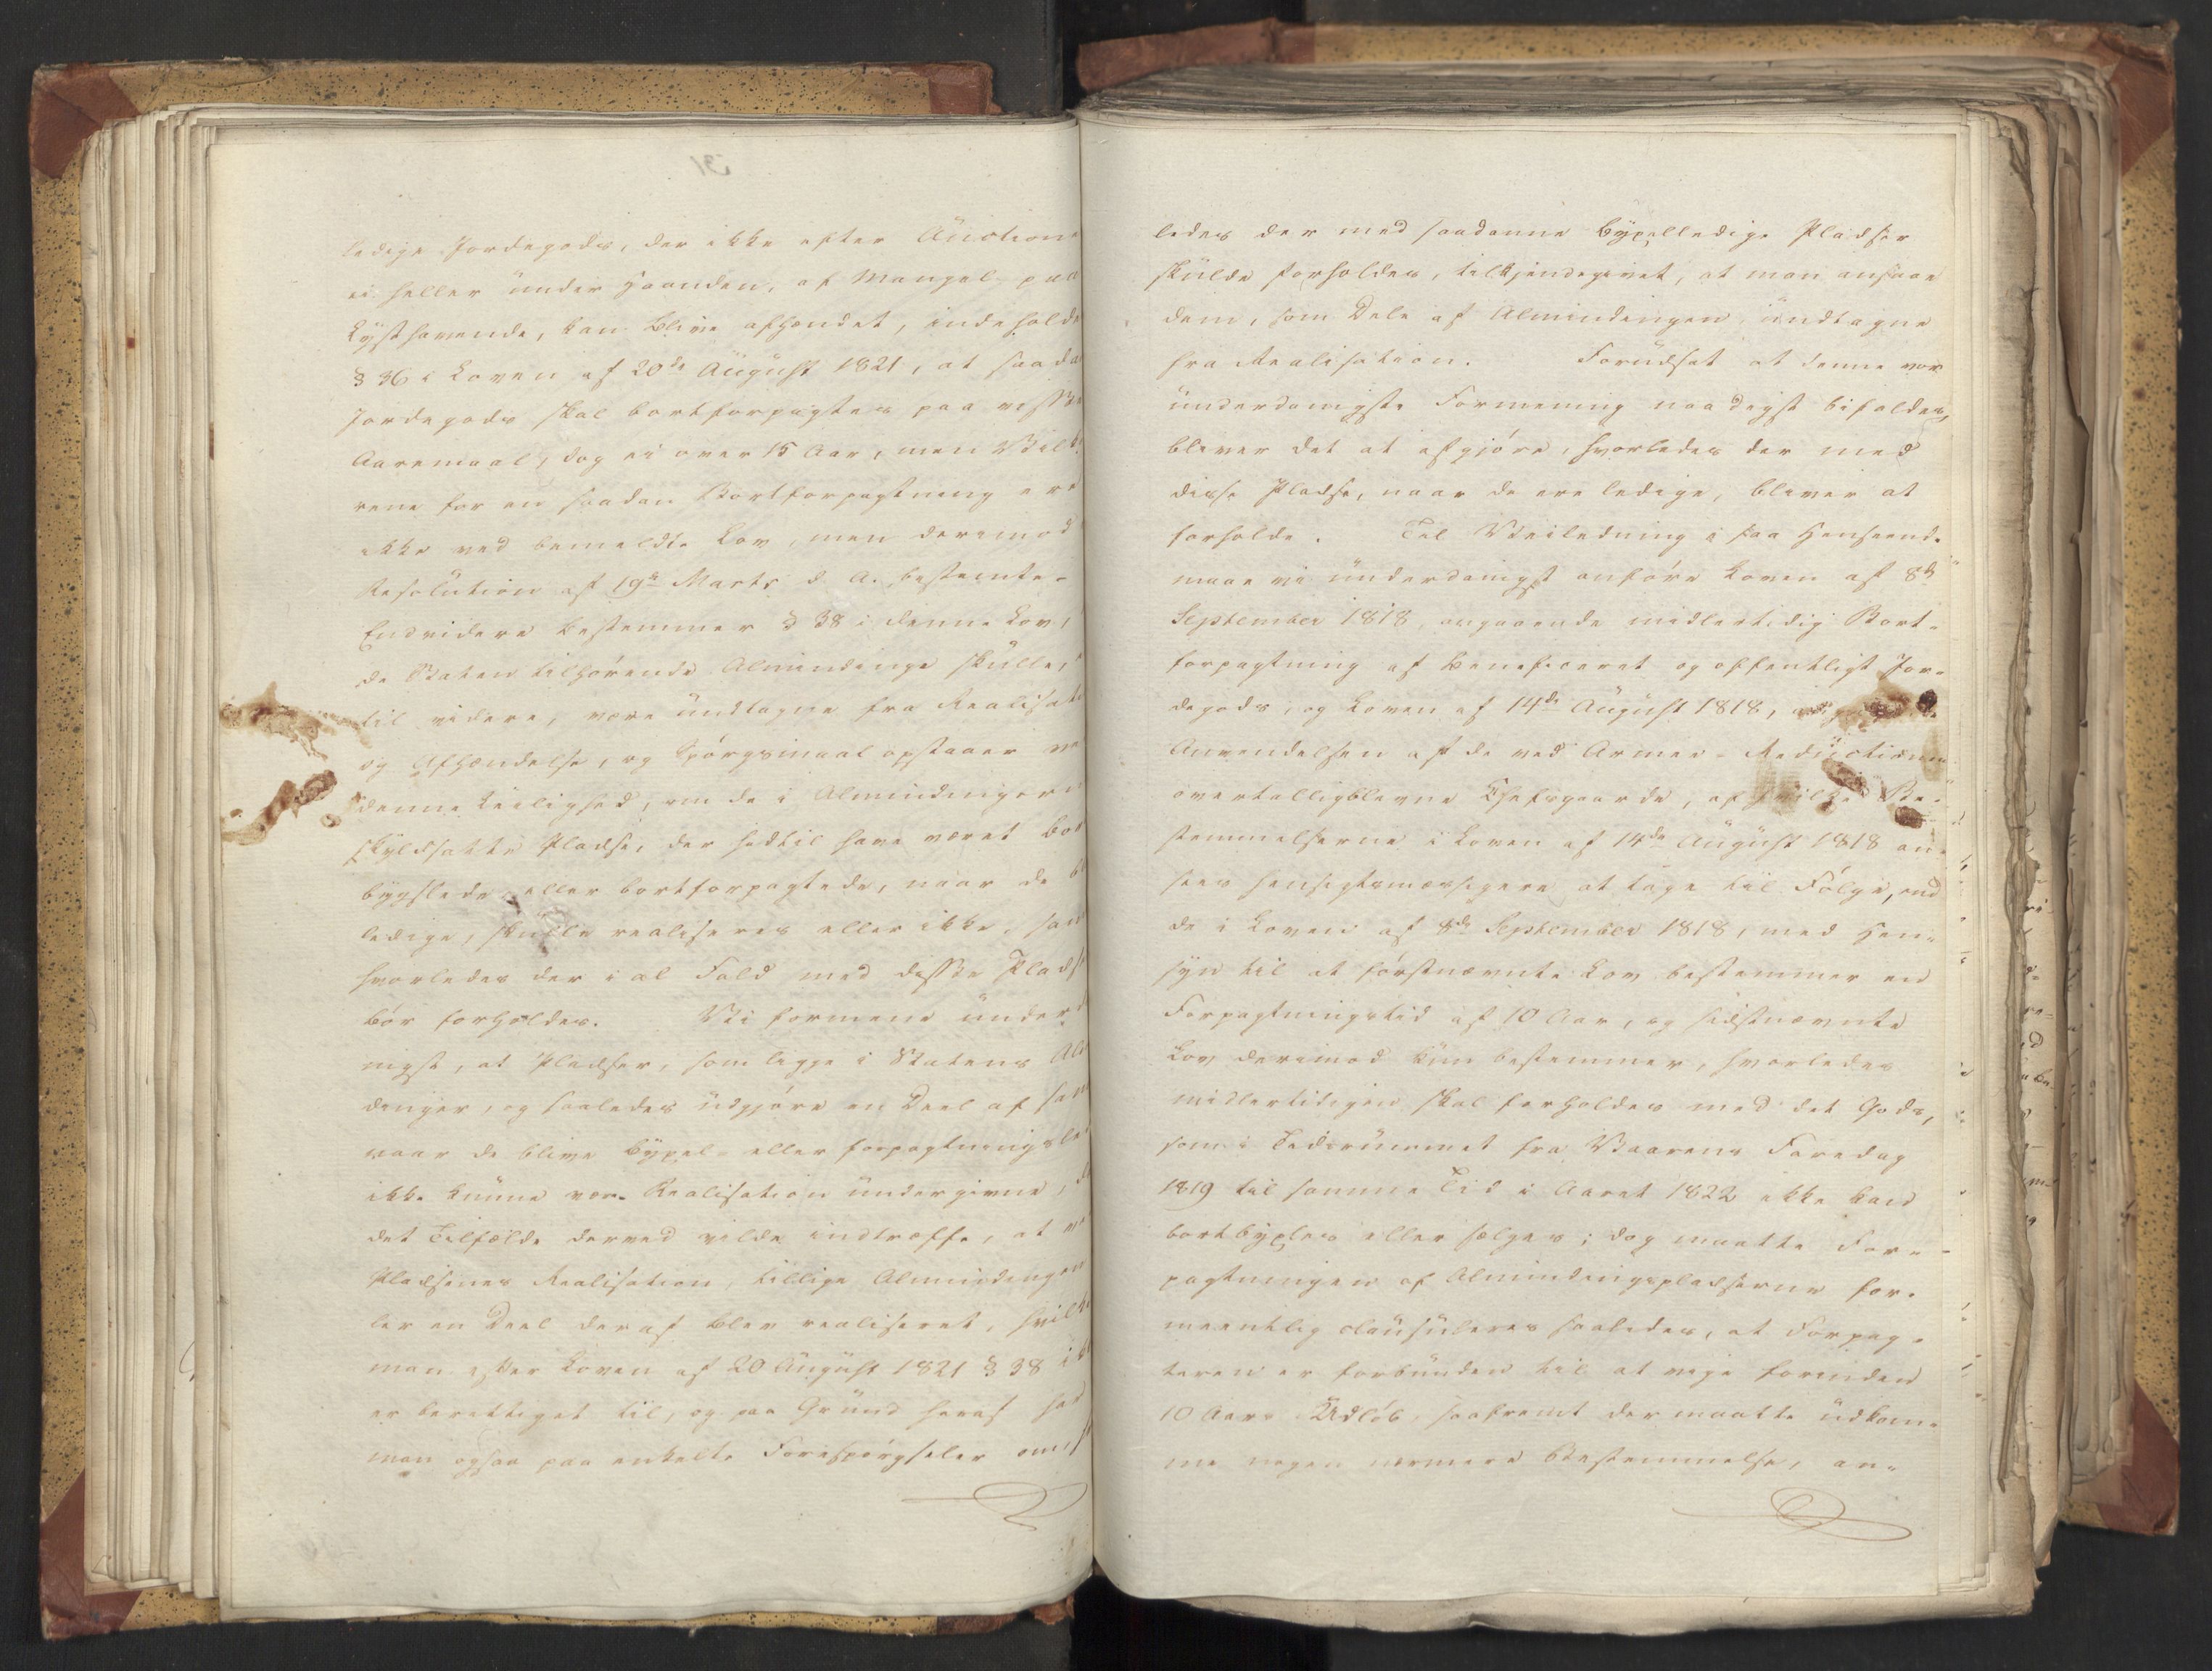 ledige Jordegods, der ikke efter Auction
ei heller under Haanden, af Mangel paa
Lysthavende, kan blive afhændet, indeholde
§ 36 i Loven af 20de August 1821, at saada
Jordegods skal bortforpagtes paa visse
Aaremaal, dog ei over 15 Aar, men Vilk
rene for en saadan Bortforpagtning ere
ikke ved bemeldte Lov, men derimod
Resolution af 19de Marts d. A. bestemte.
Endvidere bestemmer § 38 i denne Lov,
de Staten tilhørende Almindinge skulle,
til videre, være undtagne fra Realisati
og Afhændelse, og Spørgsmaal opstaaer ve
denne Leilighed, om de i Almindingerne
skyldsatte Pladse, der hidtil have været bort
bygslede eller bortforpagtede, naar de b
ledige, skulle realiseres eller ikke, sam
hvorledes der i al Fald med disse Pladse
bør forholdes. Vi formene under
nigst, at Pladser, som ligge i Statens Al
dinger, og saaledes udgjøre en Deel af sam
naar de blive bygsel- eller forpagtningsle
ikke kunne være Realisation undergivne, d
det Tilfælde derved vilde indtræffe, at ve
Pladsenes Realisation, tillige Almindingen
ler en Deel deraf blev realiseret, hvilke
man efter Loven af 20 August 1821 § 38 ik
er berettiget til, og paa Grund heraf har
man ogsaa paa enkelte Forespørgseler om
31
ledes der med saadanne bygselledige Pladser
skulde forholdes, tilkjendegivet, at man ansaae
dem, som Dele af Almindingen, undtagne
fra Realisation. Forudsat at denne vor
underdanigste Formening naadigst bifaldes,
bliver det at afgjøre, hvorledes der med
disse Pladse, naar de ere ledige, bliver at
forholde. Til Veiledning i saa Henseende
maae vi underdanigst anføre Loven af 8de
September 1818, angaaende midlertidig Bort-
forpagtning af beneficeret og offentligt Jor-
degods, og Loven af 14de August 1818,
Anvendelsen af de ved Armee-Reductionen
overtalligblevne Chefsgaarde, af hvilke Be-
stemmelserne i Loven af 14de August 1818 an-
sees hensigtsmæssigere at tage til Følge, end
de i Loven af 8de September 1818, med Hen-
syn til at førstnævnte Lov bestemmer en
Forpagtningstid af 10 Aar, og sidstnævnte
Lov derimod kun bestemmer, hvorledes
midlertidigen skal forholdes med det Gods,
som i Tidsrummet fra Vaarens Faredag
1819 til samme Tid i Aaret 1822 ikke kan
bortbygsles eller sælges; dog maatte For-
pagtningen af Almindingspladserne for-
meentlig clausuleres saaledes, at Forpag-
teren er forbunden til at vige forinden
10 Aars Udløb, saafremt der maatte udkom-
me nogen nærmere Bestemmelse, an-